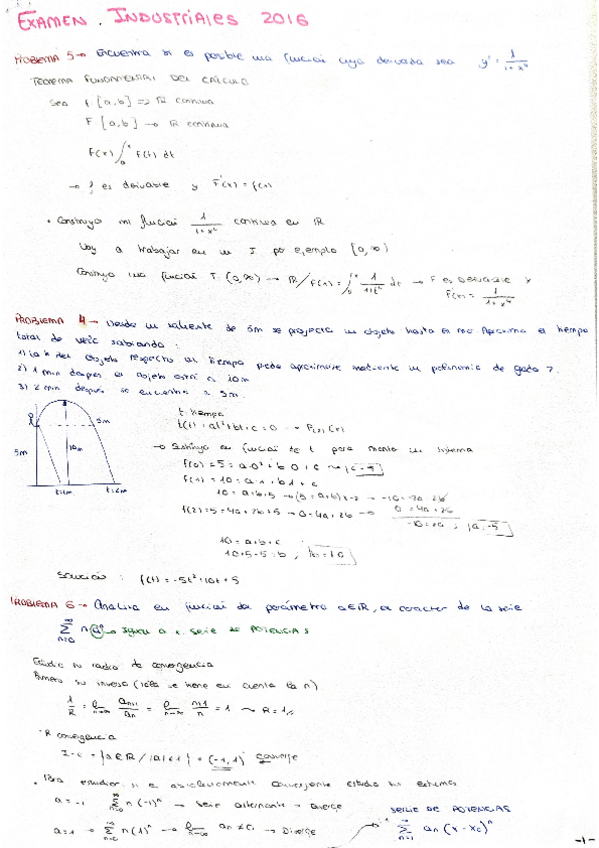 EXAMEN. INDUSTRIALES 2016
PROBLEMA 5 → Encuentra si es posible una función cuya derivada sea y' = 1/(1+x⁴)
TEOREMA FUNDAMENTAL DEL CÁLCULO
Sea f [a,b] => R continua
F [a,b] → R continua
F(x) ∫₀ˣ f(t) dt
→ f es derivable y F'(x) = f(x)
• Construyo mi función 1/(1+x⁴) continua en R
Voy a trabajar en un I por ejemplo [0,∞)
Construyo una función F: (0,∞) → R / F(x) = ∫₀ˣ 1/(1+t⁴) dt → F es DERIVABLE y
F'(x) = 1/(1+x⁴)
PROBLEMA 4 → Desde un saliente de 5m se proyecta un objeto hasta el
Aproxima el tiempo
total de sabiendo:
1) la h del objeto respecto al tiempo puede aproximarse mediante un polinomio de grado 2.
2) 1 min después el objeto está a 10m
3) 2 min después se encuentra a 5m.
t: tiempo
f(t) = at²+bt+c = 0 → P(2)(x)
→ Sustituyo en función de t para montar un sistema
5m
10m
5m
f(0) = 5 = a·0² + b·0 + c ⤳ c = 5
f(1) = 10 = a·1 + b·1 + c
10 = a+b+5 → (5 = a+b)x-2 → -10 = -2a -2b
f(2) = 5 = 4a+2b+5 → 0 = 4a+2b → 0 = 4a+2b
-10 = 2a ; a = -5
10 = a+b+c
10+5-5 = b ; b = 10
Solución : f(t) = -5t²+10t+5
PROBLEMA 6 → Analiza en función del parámetro a∈R, el carácter de la serie
∑ n aⁿ → Igual a 1 serie de POTENCIAS
Estudio su radio de convergencia
Primero su inverso (sólo se tiene en cuenta la n)
1/R = lim aₙ₊₁/aₙ = lim (n+1)/n = 1 ⤳ R = 1
R convergencia
I·c = {a∈R / |a|<1} = (-1,1) converge
• Para estudiar si es absolutamente convergente estudio sus extremos
a = -1 ∑ n(-1)ⁿ → serie alternante → diverge
a = 1 → ∑ n(1)ⁿ → lim aₙ ≠ 0 → Diverge
SERIE DE POTENCIAS
∑ aₙ (x - x₀)ⁿ
-1-